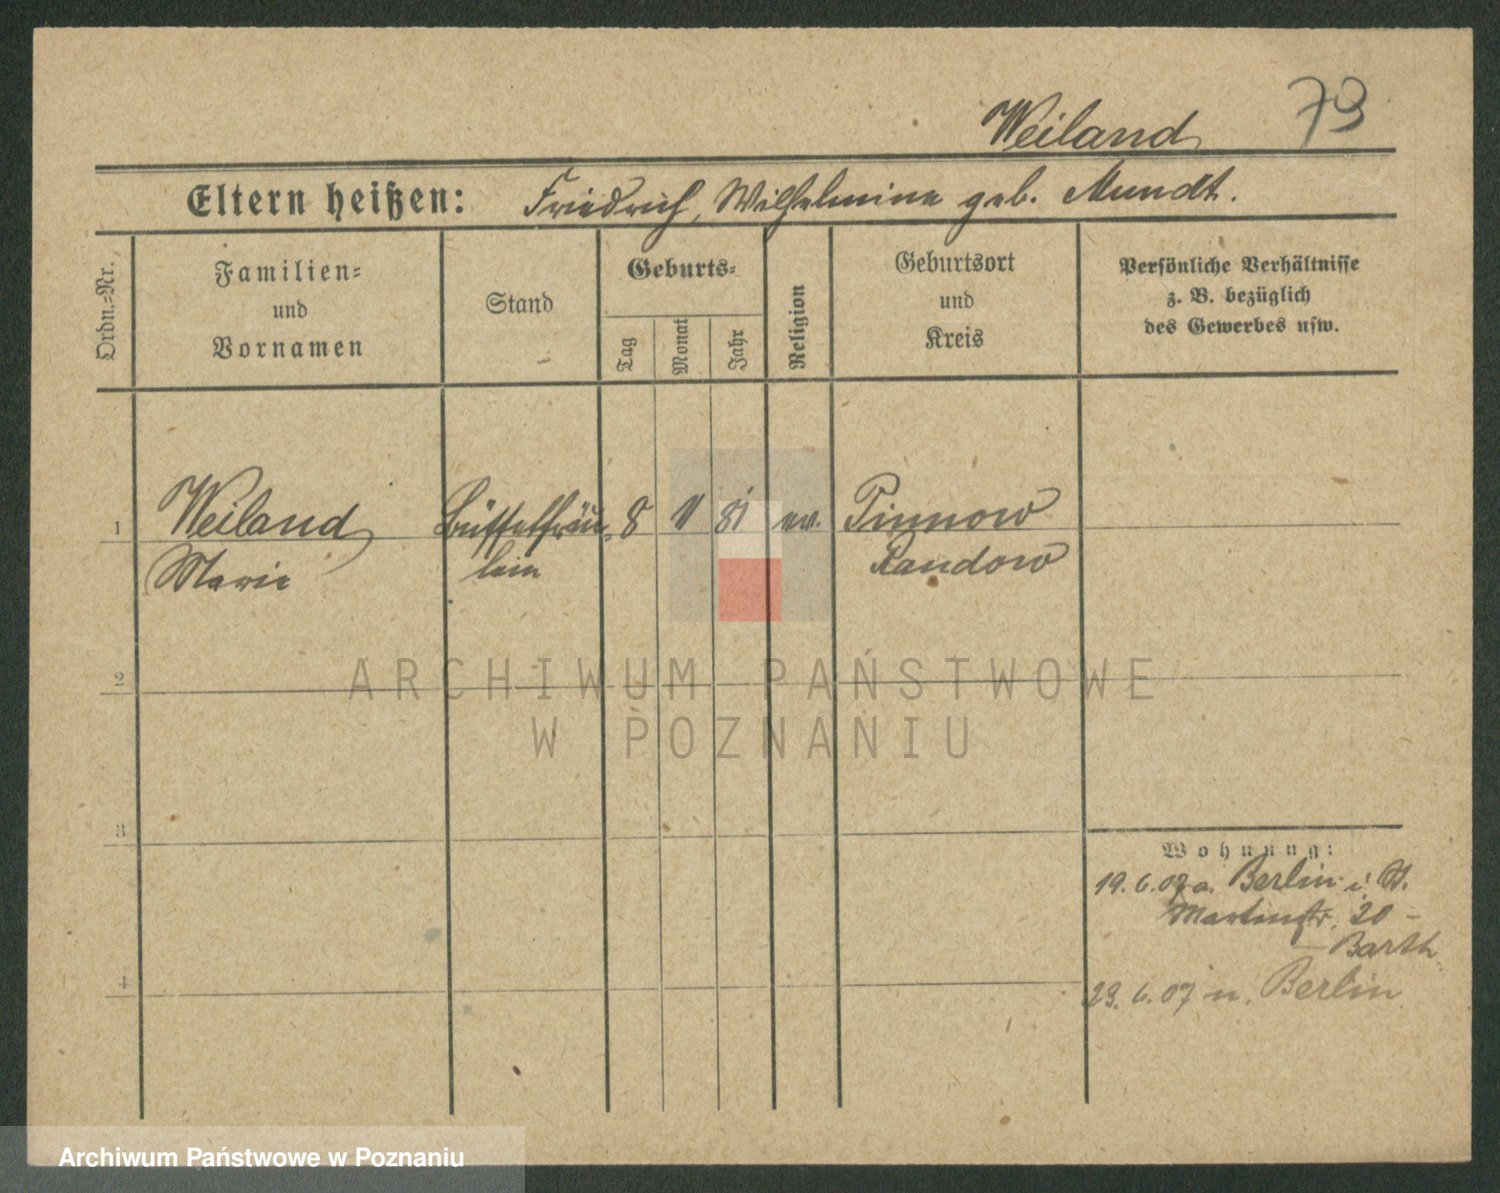 Weiland 79
Eltern heißen: Friedrich, Wilhelmine geb. Mundt.
Ordn.=Nr.
Familien=
und
Vornamen
Stand
Geburts=
Tag
Monat
Jahr
Religion
Geburtsort
und
Kreis
Persönliche Verhältnisse
z. B. bezüglich
des Gewerbes usw.
1 Weiland Büffetfräu= 8 11 81 ev. Pinnow
Marie lein Randow
2
ARCHIWUM PAŃSTWOWE
W POZNANIU
3
Wohnung:
19. 6. 07 a. Berlin i
Martinstr. 20 –
– Barth
4
23. 6. 07 n. Berlin
Archiwum Państwowe w Poznaniu